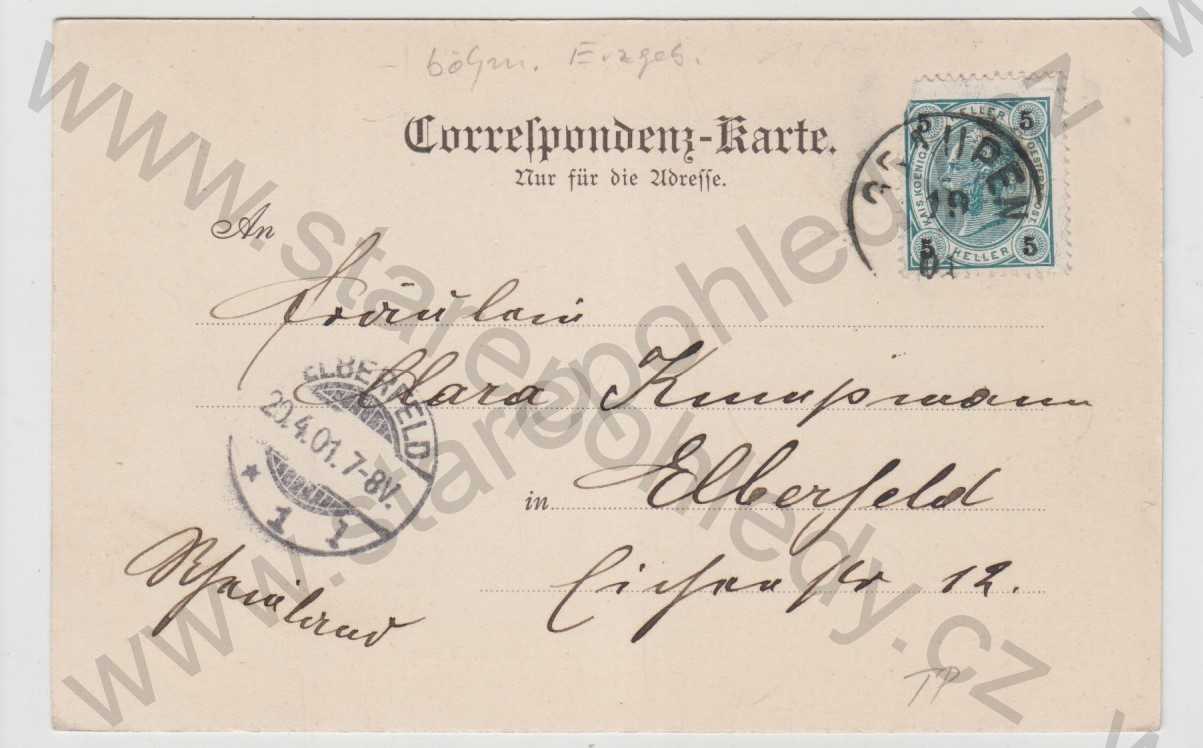 böhm. Erzgeb.
Correſpondenz-Karte.
Nur für die Adreſſe.
An
Fräulein
Clara
in Elberfeld
12.
Rheinland
ELBERFELD
20.4.01.7-8V.
* 1 1
5 HELLER 5
KAIS. KOENIG. OESTERR. POST.
5 HELLER 5
19
01
TP
www.starepohledy.cz
www.starepohledy.cz